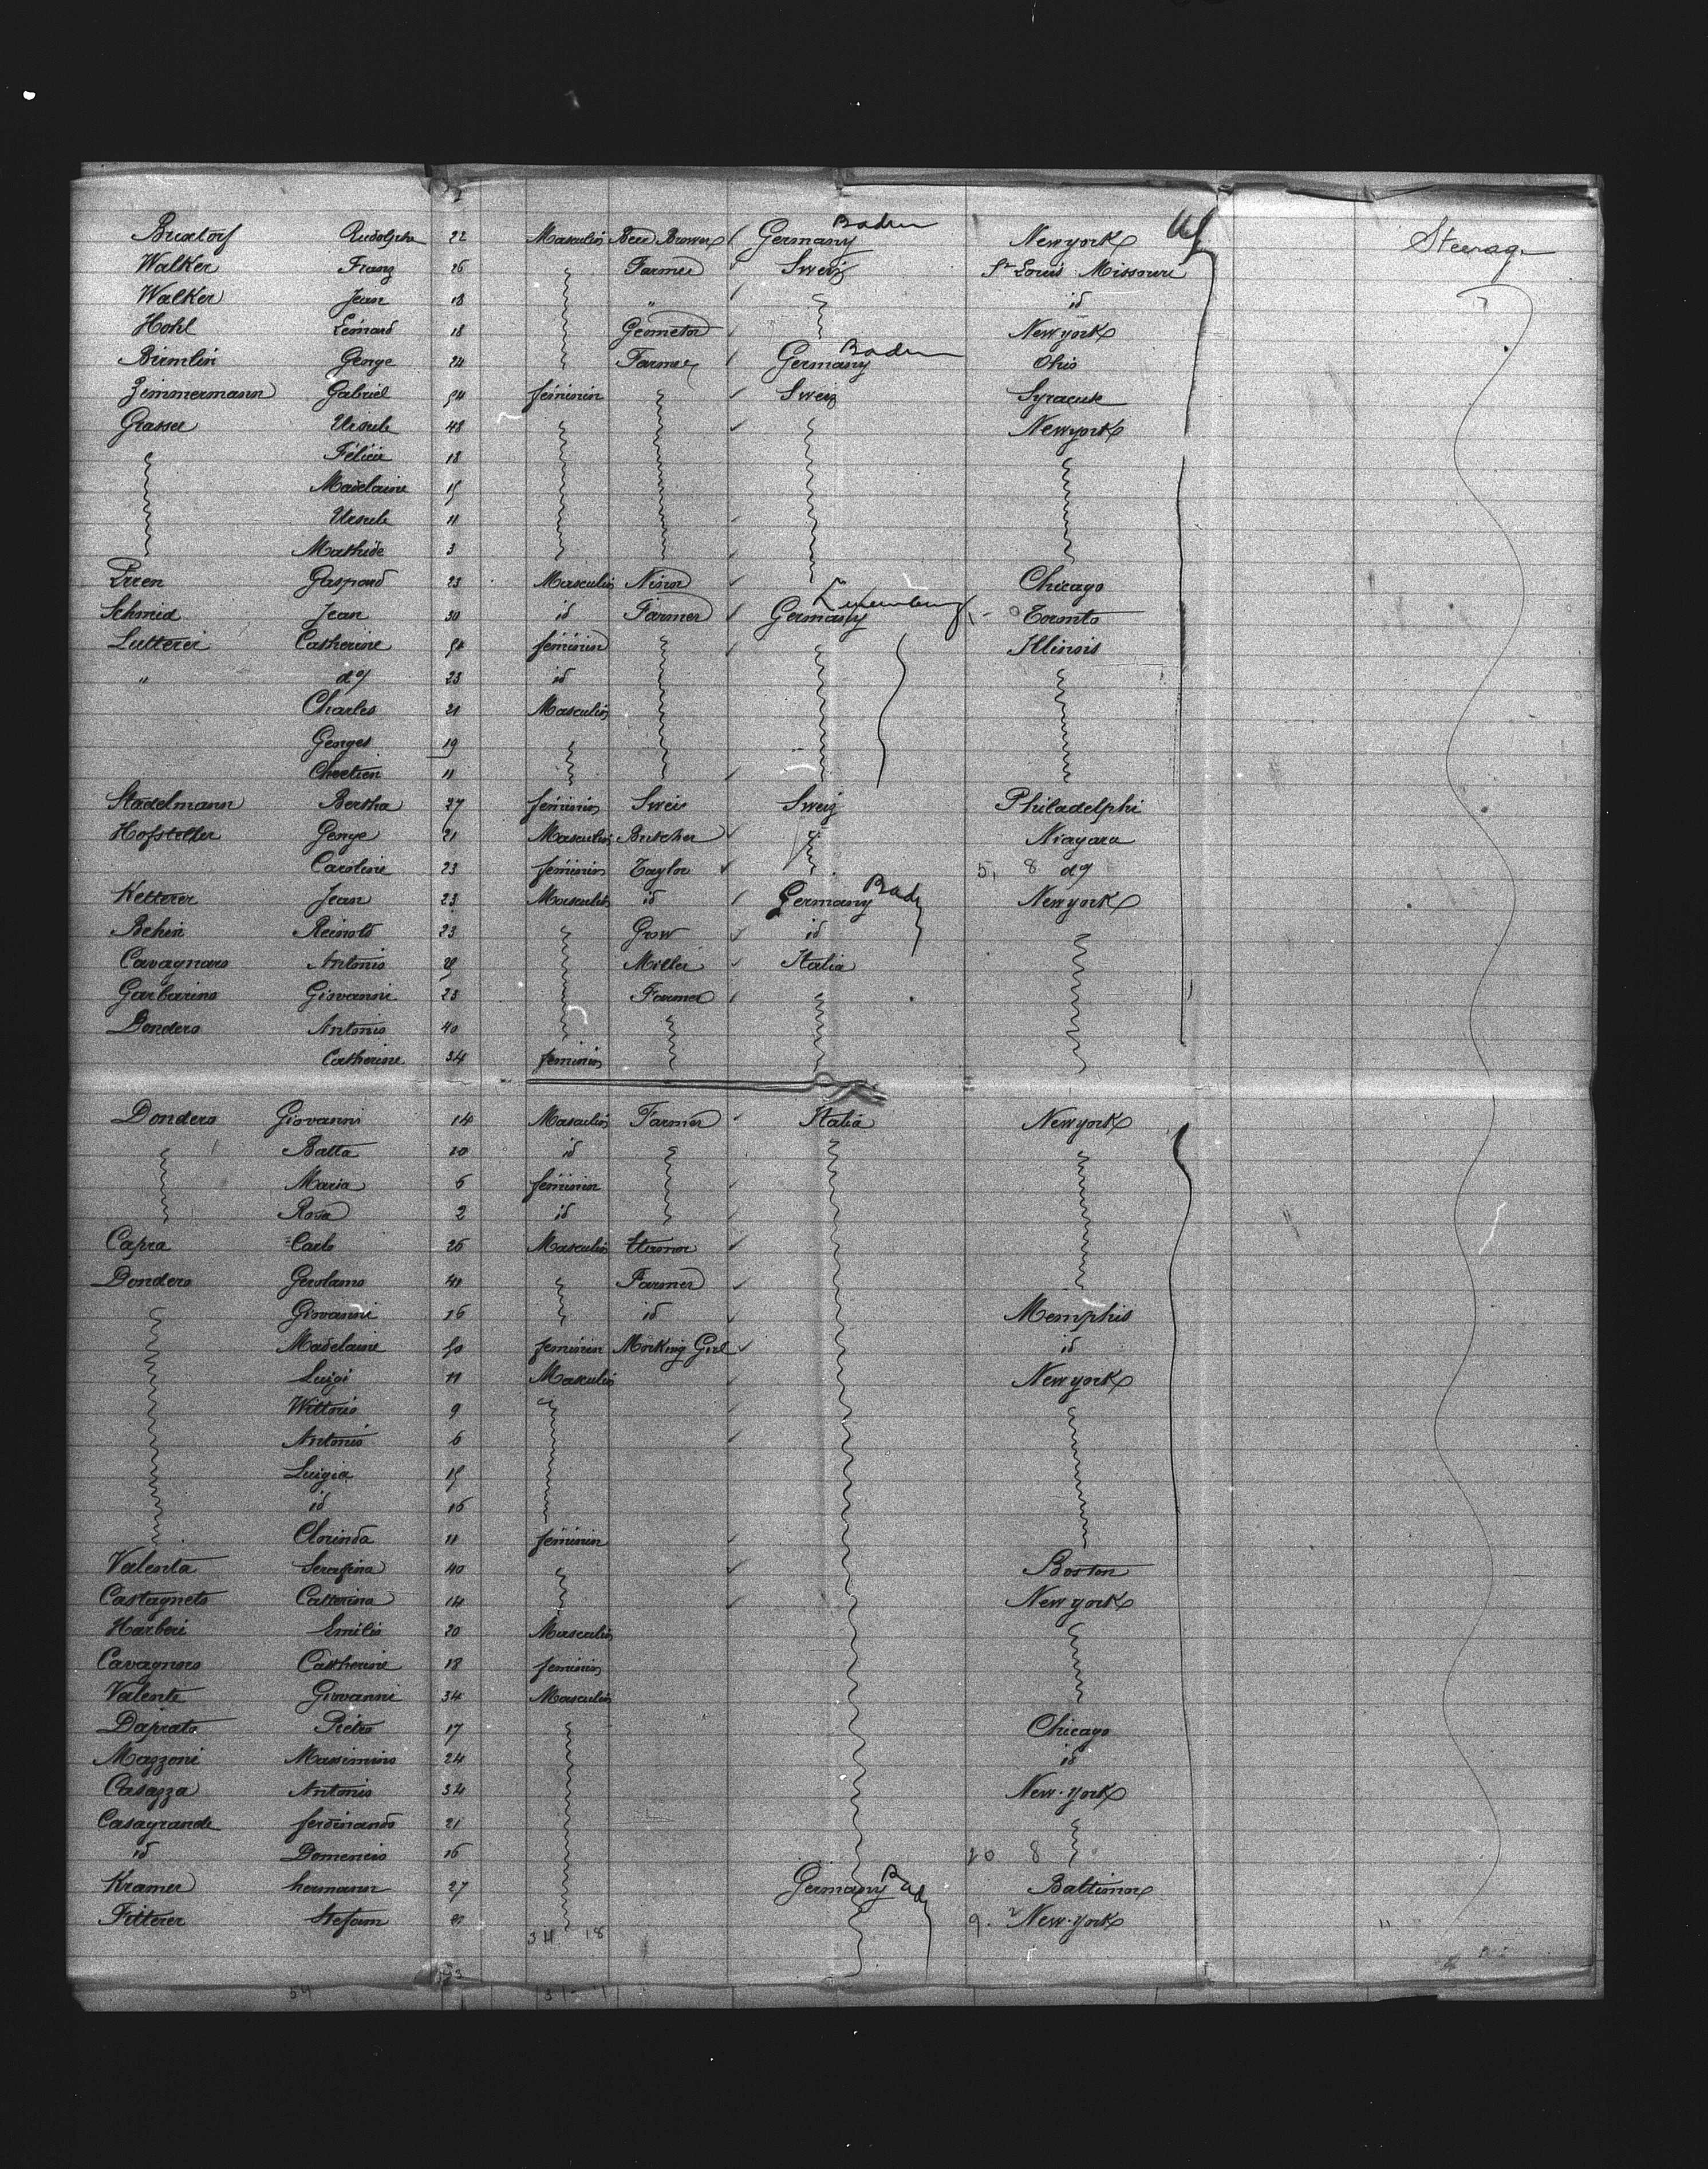 Buxtorf Rudolph 22 Masculin Beer Brower Germany Baden Newyork Steerage
Walker Franz 26 Farmer Sweiz St Louis Missouri
Walker Jean 18 " id
Hohl Léonard 18 Geometor Newyork
Birmlin George 24 Farmer Germany Baden Ohio
Zimmermann Gabriel 54 féminin Sweiz Syracuse
Grasser Ursule 48 Newyork
Félicie 18
Madelaine 15
Ursule 11
Mathide 3
Irren Gaspard 23 Masculin Chicago
Schmid Jean 30 id Farmer Germany Luxemburg Toronto
Lutterer Catherine 54 féminin Illinois
" do 23 id
Charles 21 Masculin
Georges 19
Chretien 11
Stadelmann Bertha 27 féminin Sweiz Philadelphi
Hofstetter George 21 Masculin Butcher Niagara
Caroline 23 féminin Taylor 5, 8 do
Ketterer Jean 23 Masculin id Germany Bad Newyork
Behin 23 Grow id
Cavagnaro Antonio Miller Italia
Garbarino Giovanni 23 Farmer
Dondero Antonio 40
Catherine 34 feminin
Dondero Giovanni 14 Masculin Farmer Italia Newyork
Batta 10 id
Maria 6 féminin
Rosa 2 id
Capra Carlo 26 Masculin
Dondero Gerolamo 41 Farmer
Giovanni 16 id Memphis
Madelaine 50 féminin Morking Girl id
Luigi 11 Masculin Newyork
Wittorio 9
Antonio 6
Luigia 15
id 16
Clorinda 11 féminin
Valenta Serafina 40 Boston
Castagneto Catterina 14 New york
Harberi Emilio 20 Masculin
Cavagnoro Cattherine 18 feminin
Valente Giovanni 34 Masculin
Daprato Pietro 17 Chicago
Mazzoni Massimino 24 id
Casazza Antonio 32 New-york
Casagrande ferdinando 21
id Domenico 16 20 8
Kramer hermann 27 Germany Bad Baltimore
Fitterer Stefann 9. 2 New-york
34 18
54